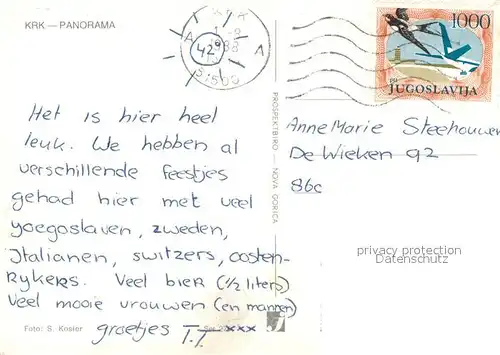 KRK — PANORAMA
1000
JUGOSLAVIJA
Het is hier heel
leuk. We hebben al
verschillende feestjes
gehad hier met veel
yoegoslaven, zweden,
Italianen, switzers, oosten-
Rykers. Veel bier (1/2 liters)
Veel mooie vrouwen (en mannen)
groetjes T.T. xxx
Foto: S. Kosier
PROSPEKTBIRO — NOVA GORICA
AnneMarie Steehouwer
De Wieken 92
86c
privacy protection
Datenschutz